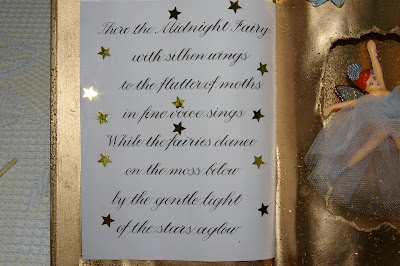 There the Midnight Fairy
with silken wings
to the flutter of moths
in fine voice sings
While the fairies dance
on the moss below
by the gentle light
of the stars aglow